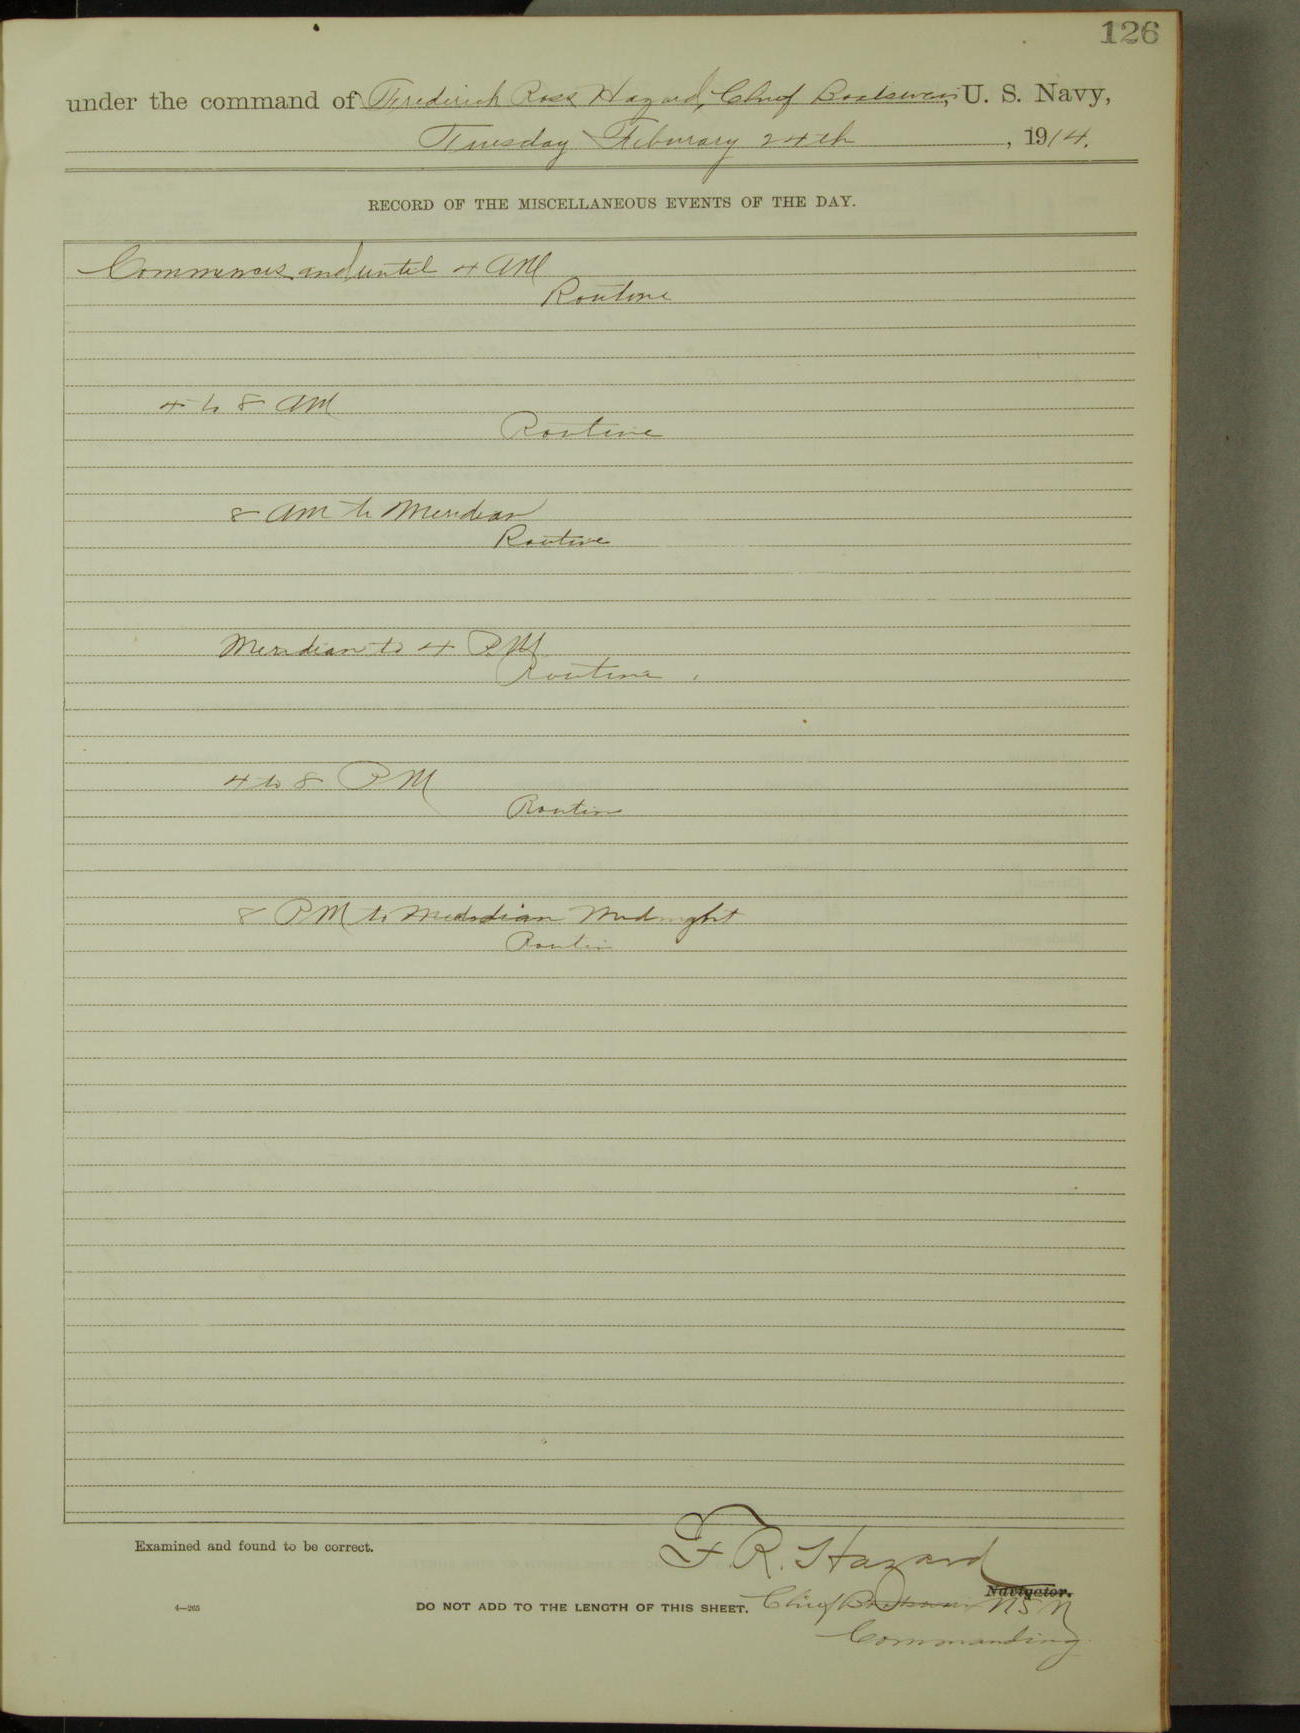 126
under the command of Frederick Ross Hazard, Chief Boatswain, U. S. Navy,
Tuesday February 24th, 1914.
RECORD OF THE MISCELLANEOUS EVENTS OF THE DAY.
Commences and until 4 AM
Routine
4 to 8 AM
Routine
8 AM to Meridian
Routine
Meridian to 4 PM
Routine.
4 to 8 PM
Routine
8 PM to Meridian Midnight
Routine
Examined and found to be correct.
F. R. Hazard
Navigator.
4—265
DO NOT ADD TO THE LENGTH OF THIS SHEET.
Chief Boatswain USN
Commanding